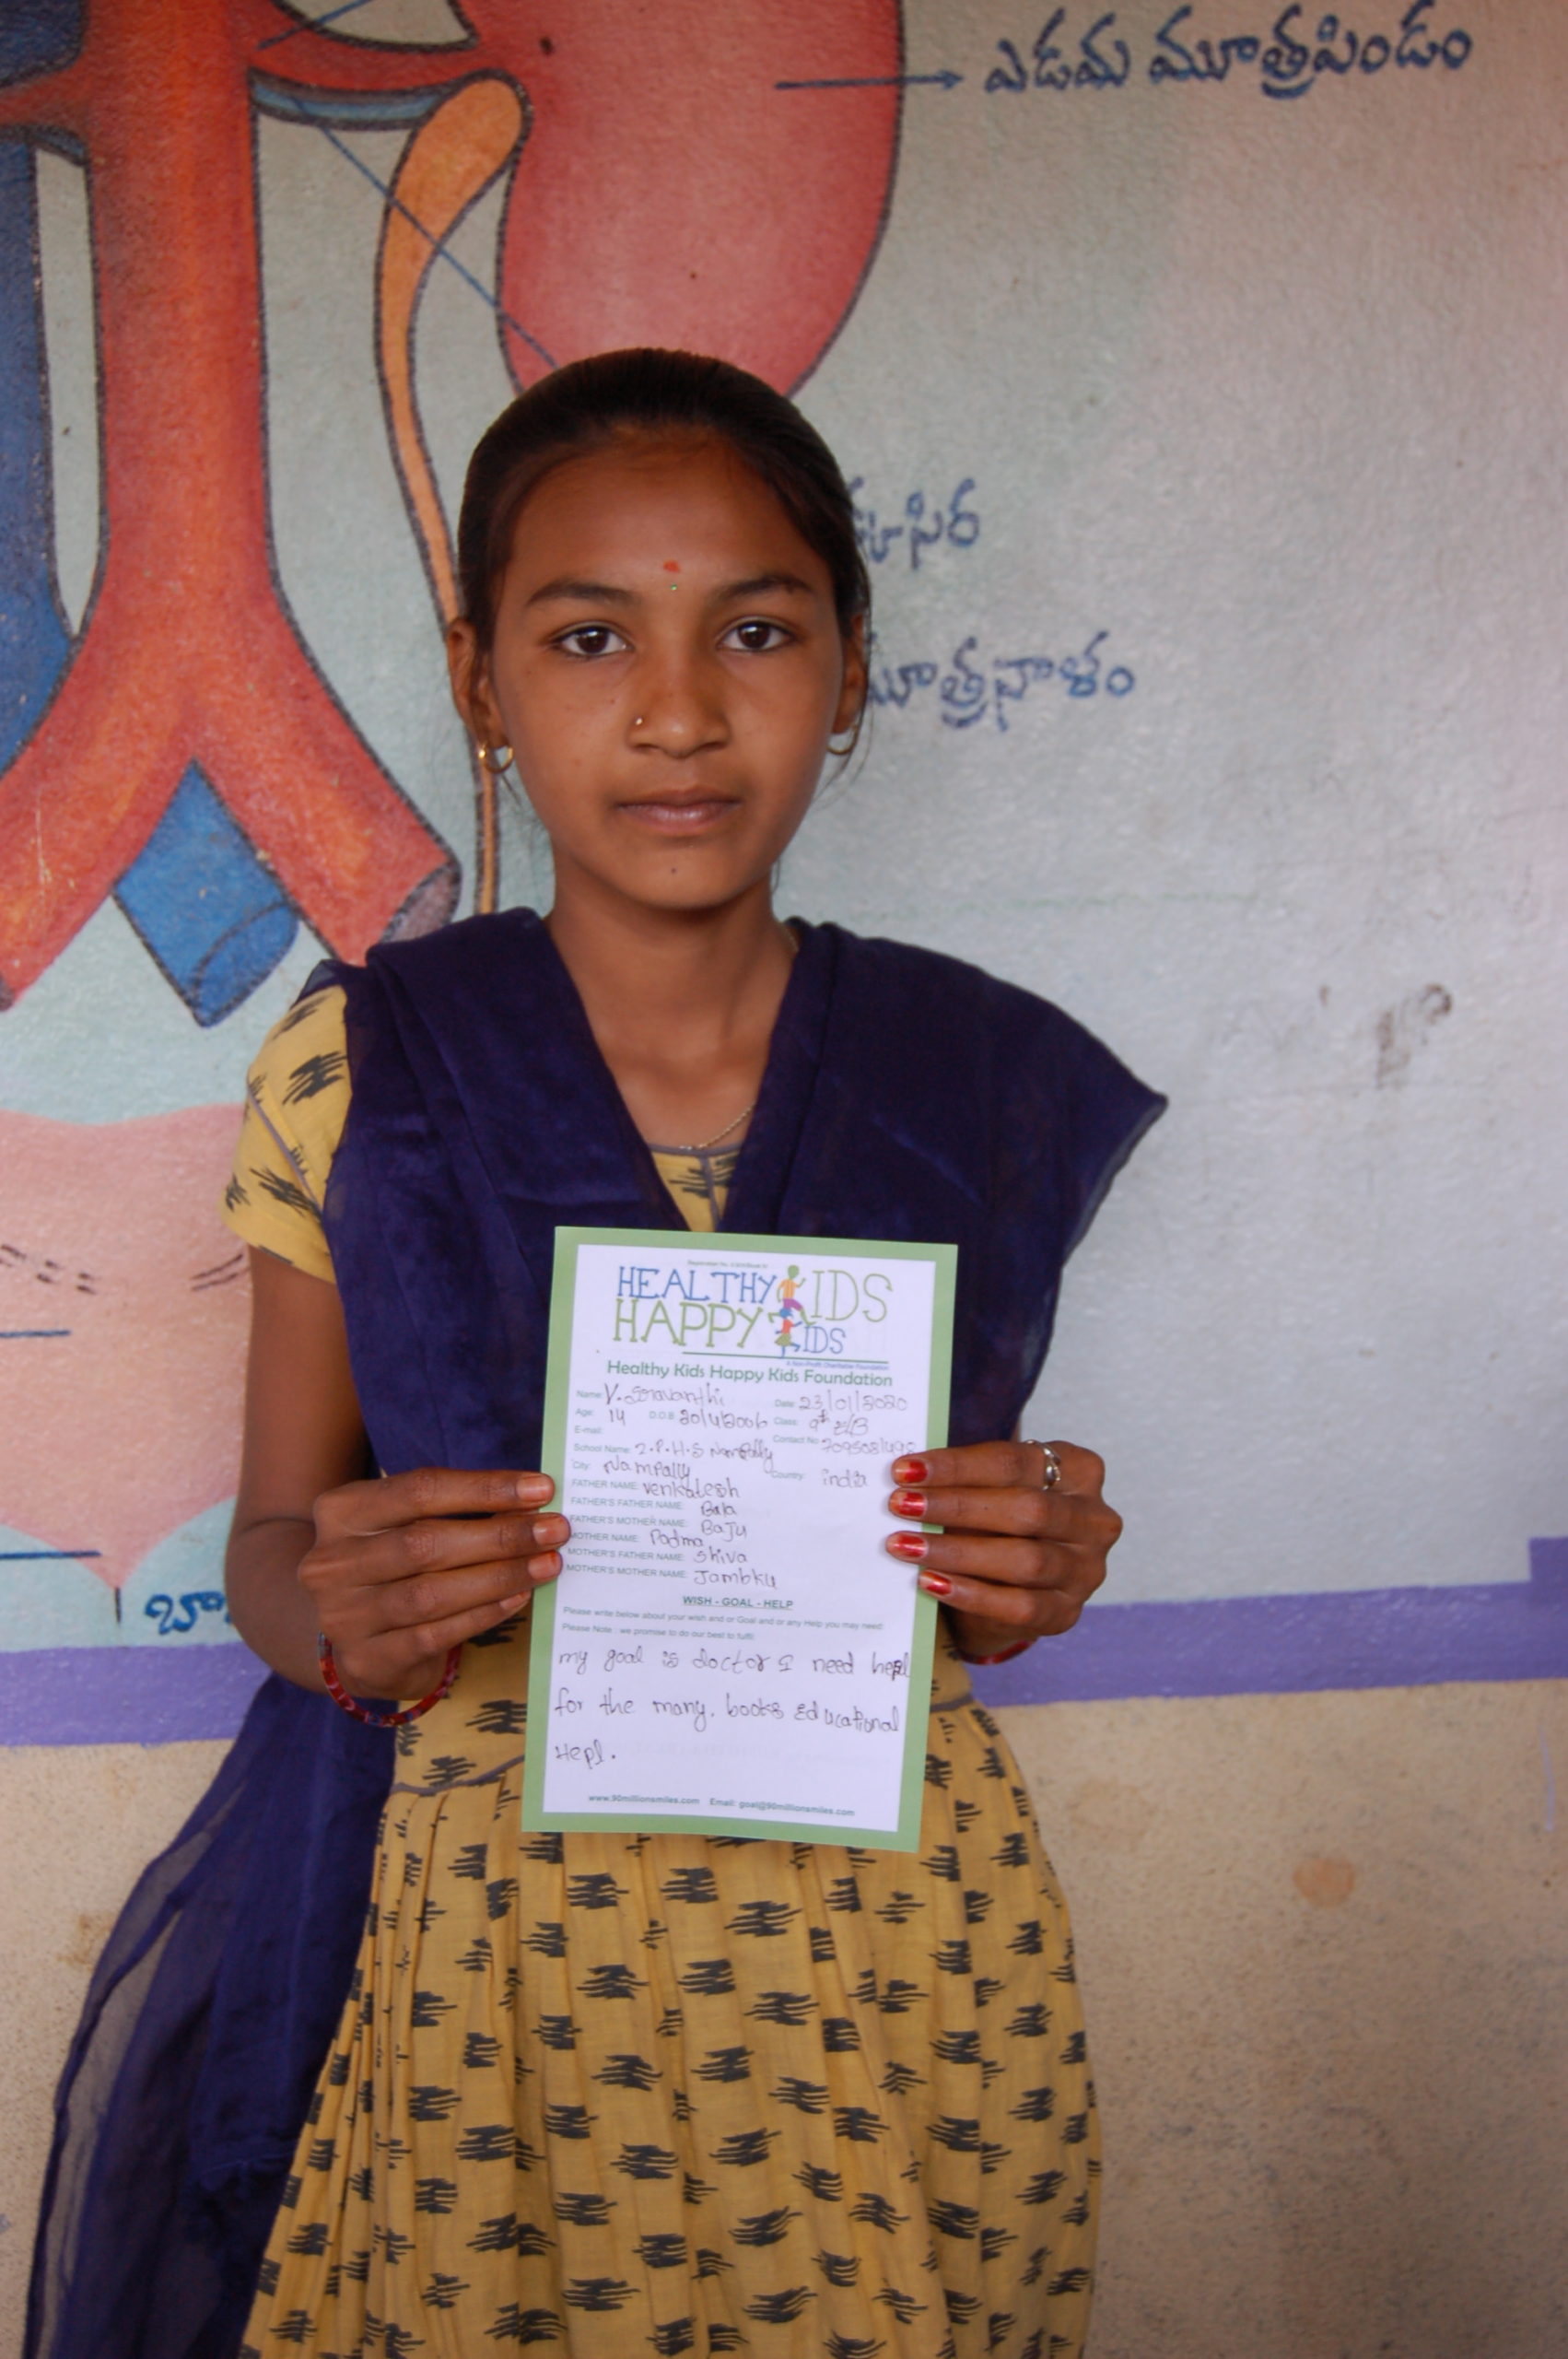 ఎడమ మూత్రపిండం
సిర
మూత్రనాళం
HEALTHY KIDS
HAPPY KIDS
A Non-Profit Charitable Foundation
Healthy Kids Happy Kids Foundation
Name: V. Sravanthi Date: 23/01/2020
Age: 14 D.O.B: 20/4/2006 Class: 9th
E-mail: Contact No: 7095081498
School Name: Z.P.H.S Nampally
City: Nampally Country: india
FATHER NAME: venkatesh
FATHER'S FATHER NAME: Bala
FATHER'S MOTHER NAME: Baju
MOTHER NAME: Padma
MOTHER'S FATHER NAME: Shiva
MOTHER'S MOTHER NAME: Jambku
WISH - GOAL - HELP
Please write below about your wish and or Goal and or any Help you may need:
Please Note : we promise to do our best to fulfil.
my goal is doctor I need hepl
for the many. books Educational
Hepl.
www.90millionsmiles.com Email: goal@90millionsmiles.com